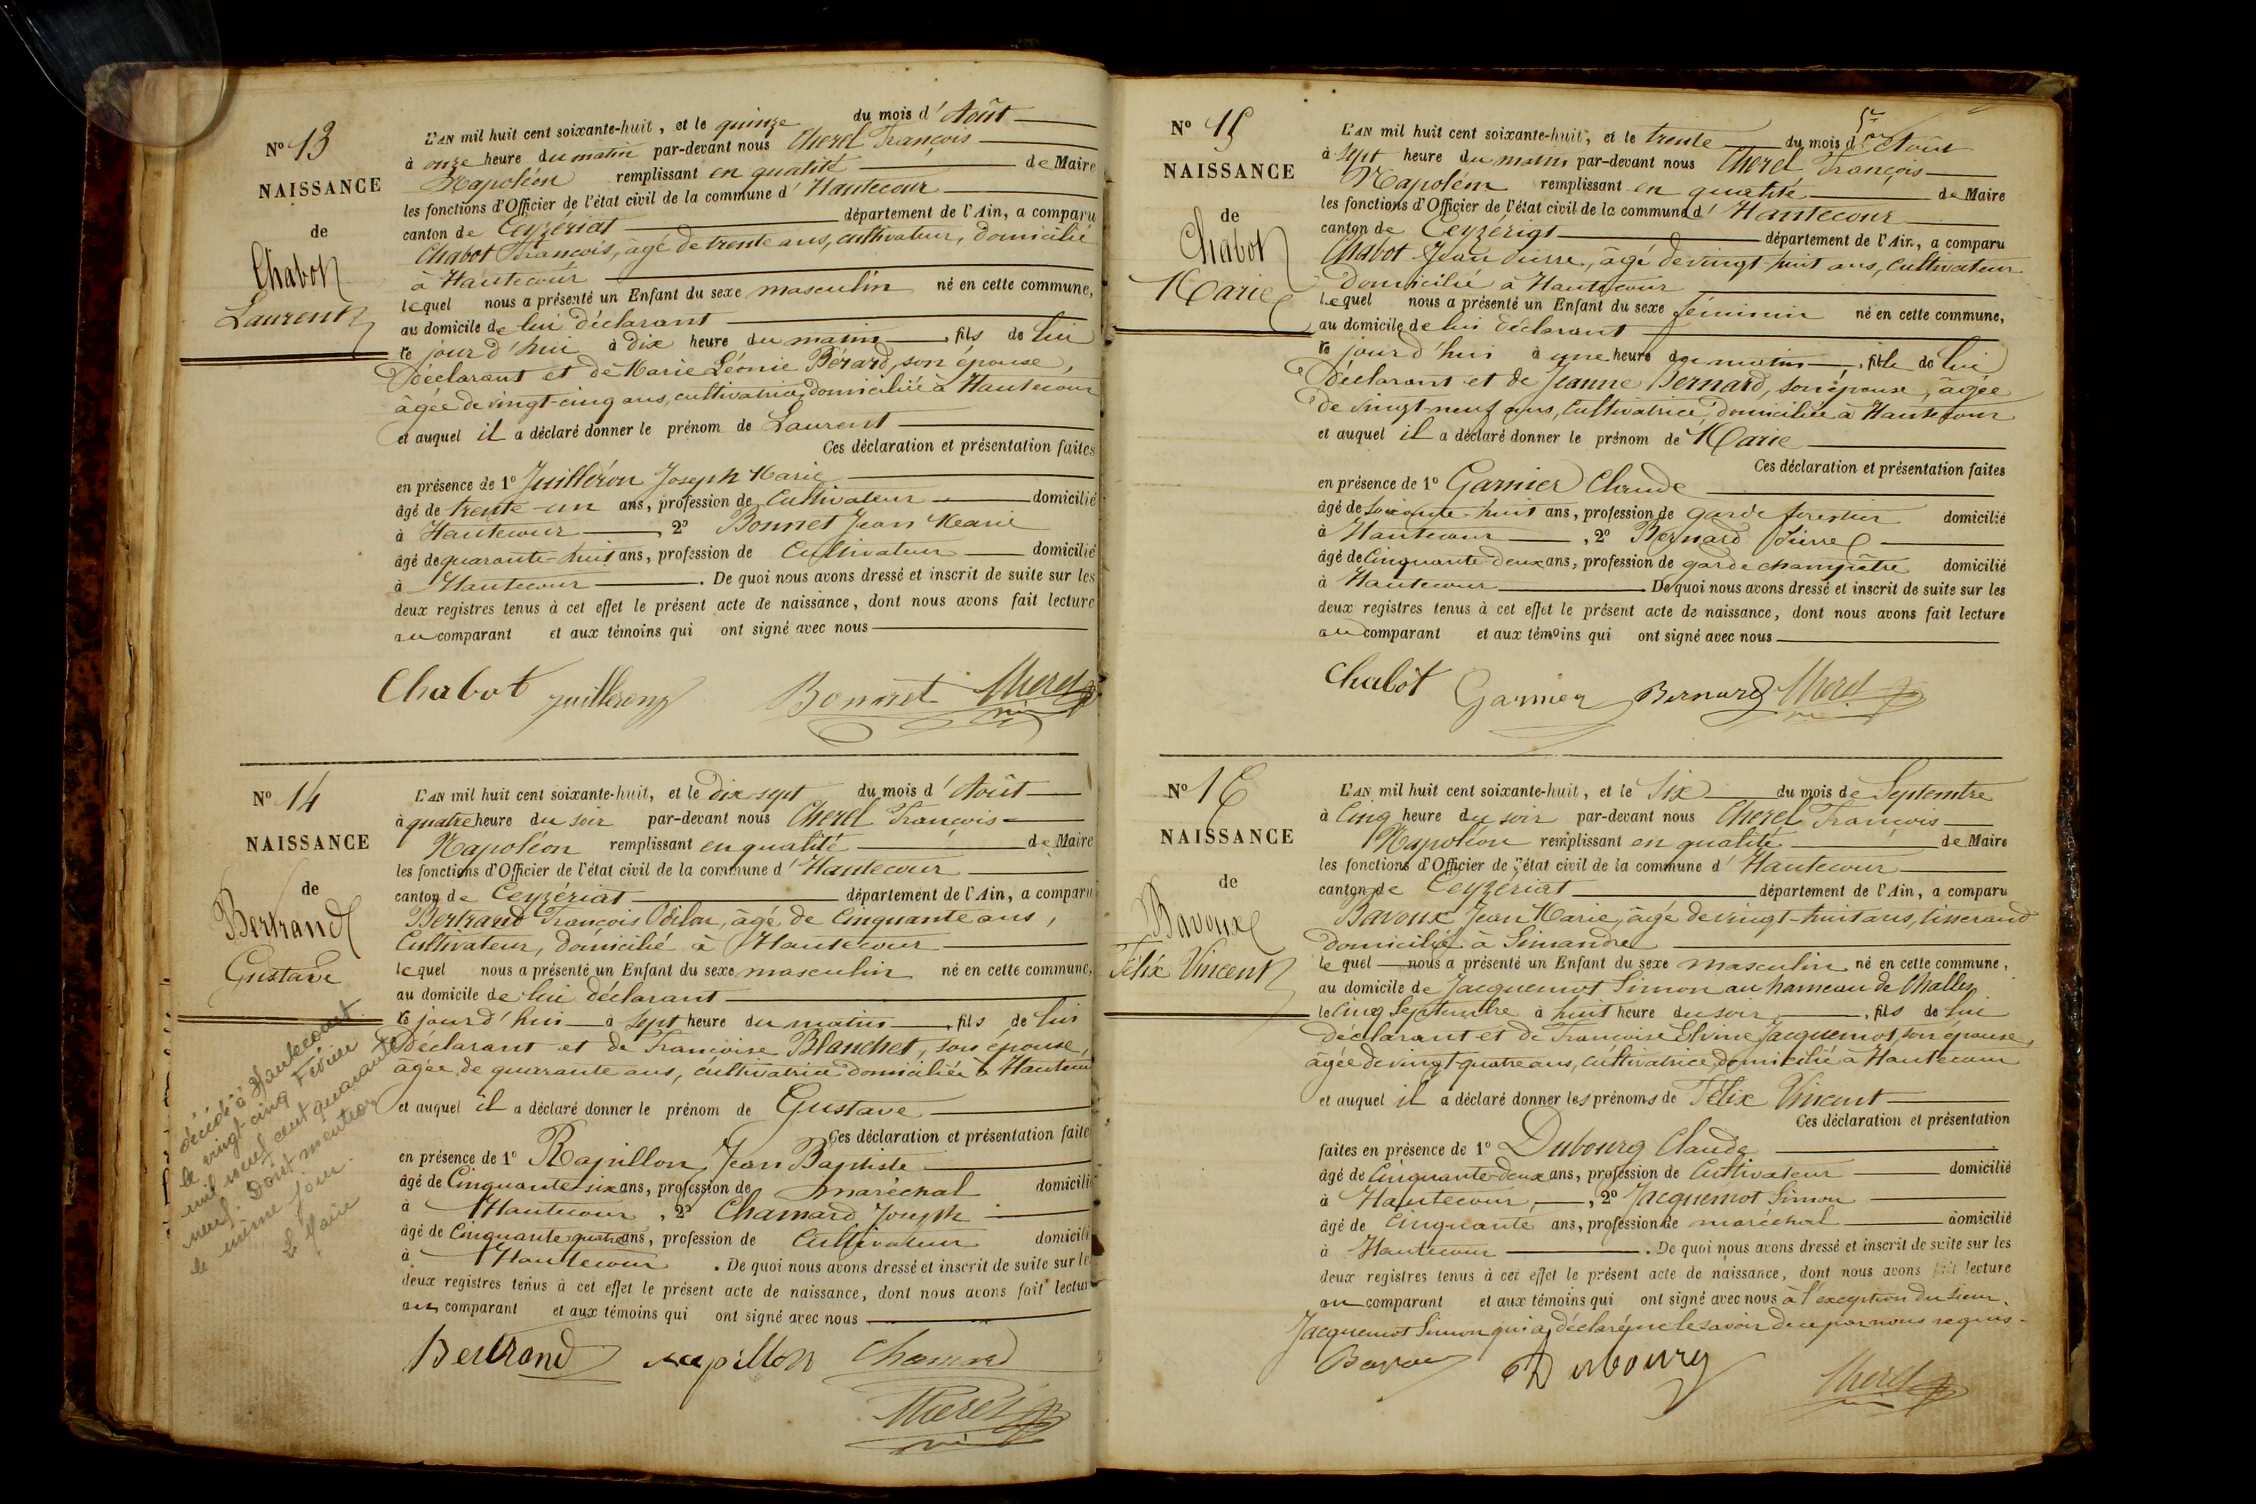 Nº 13
NAISSANCE
de
Chabot
Laurent
L'AN mil huit cent soixante-huit, et le quinze du mois d'Août
à onze heure du matin par-devant nous Cherel François
Napoléon remplissant en qualité de Maire
les fonctions d'Officier de l'état civil de la commune d'Hautecour
canton de Ceyzériat département de l'Ain, a comparu
Chabot François, âgé de trente ans, cultivateur, domicilié
à Hautecour
lequel nous a présenté un Enfant du sexe masculin né en cette commune,
au domicile de lui déclarant
ce jourd'hui à dix heure du matin, fils de lui
déclarant et de Marie Léonie Bérard, son épouse,
âgée de vingt-cinq ans, cultivatrice, domiciliée à Hautecour
et auquel il a déclaré donner le prénom de Laurent
Ces déclaration et présentation faites
en présence de 1º Juilléron Joseph Marie
âgé de trente-un ans, profession de Cultivateur domicilié
à Hautecour, 2º Bonnet Jean Marie
âgé de quarante-huit ans, profession de Cultivateur domicilié
à Hautecour. De quoi nous avons dressé et inscrit de suite sur les
deux registres tenus à cet effet le présent acte de naissance, dont nous avons fait lecture
au comparant et aux témoins qui ont signé avec nous
Chabot Juilleron Bonnet Cherel
Nº 14
NAISSANCE
de
Bertrand
Gustave
décédé à Hautecourt
le vingt-cinq Février
mil neuf cent quarante
neuf. Dont mention
le même jour.
Le Maire
L'AN mil huit cent soixante-huit, et le dix sept du mois d'Août
à quatre heure du soir par-devant nous Cherel François
Napoléon remplissant en qualité de Maire
les fonctions d'Officier de l'état civil de la commune d'Hautecour
canton de Ceyzériat département de l'Ain, a comparu
Bertrand François Odilon, âgé de Cinquante ans,
Cultivateur, domicilié à Hautecour
lequel nous a présenté un Enfant du sexe masculin né en cette commune,
au domicile de lui déclarant
ce jourd'hui à sept heure du matin, fils de lui
déclarant et de Françoise Blanchet, son épouse,
âgée de quarante ans, cultivatrice domiciliée à Hautecour
et auquel il a déclaré donner le prénom de Gustave
Ces déclaration et présentation faite
en présence de 1º Rapillon Jean Baptiste
âgé de Cinquante-six ans, profession de maréchal domicilié
à Hautecour, 2º Chamard Joseph
âgé de Cinquante quatre ans, profession de Cultivateur domicili
à Hautecour. De quoi nous avons dressé et inscrit de suite sur le
deux registres tenus à cet effet le présent acte de naissance, dont nous avons fait lectur
au comparant et aux témoins qui ont signé avec nous
Bertrand rapillon Chamard
Cherel
Nº 15
NAISSANCE
de
Chabot
Marie
L'AN mil huit cent soixante-huit, et le trente du mois d'Août
à sept heure du matin par-devant nous Cherel François
Napoléon remplissant en qualité de Maire
les fonctions d'Officier de l'état civil de la commune d'Hautecour
canton de Ceyzériat département de l'Ain, a comparu
Chabot Jean Pierre, âgé de vingt-huit ans, Cultivateur
domicilié à Hautecour
lequel nous a présenté un Enfant du sexe féminin né en cette commune,
au domicile de lui déclarant
ce jourd'hui à une heure du matin, fille de lui
déclarant et de Jeanne Bernard, son épouse, âgée
de vingt-neuf ans, Cultivatrice, domiciliée à Hautecour
et auquel il a déclaré donner le prénom de Marie
Ces déclaration et présentation faites
en présence de 1º Garnier Claude
âgé de soixante-huit ans, profession de garde forestier domicilié
à Hautecour, 2º Bernard Pierre
âgé de Cinquante-deux ans, profession de garde champêtre domicilié
à Hautecour. De quoi nous avons dressé et inscrit de suite sur les
deux registres tenus à cet effet le présent acte de naissance, dont nous avons fait lecture
au comparant et aux témoins qui ont signé avec nous
Chabot Garnier Bernard Cherel
Nº 16
NAISSANCE
de
Bavoux
Félix Vincent
L'AN mil huit cent soixante-huit, et le Six du mois de Septembre
à Cinq heure du soir par-devant nous Cherel François
Napoléon remplissant en qualité de Maire
les fonctions d'Officier de l'état civil de la commune d'Hautecour
canton de Ceyzériat département de l'Ain, a comparu
Bavoux Jean Marie, âgé de vingt-huit ans, tisserand
domicilié à Simandre
lequel nous a présenté un Enfant du sexe masculin né en cette commune,
au domicile de Jacquemot Simon au hameau de Challes
le Cinq Septembre à huit heure du soir, fils de lui
déclarant et de Françoise Elvine Jacquemot, son épouse,
âgée de vingt-quatre ans, cultivatrice, domicilié à Hautecour
et auquel il a déclaré donner les prénoms de Félix Vincent
Ces déclaration et présentation
faites en présence de 1º Dubourg Claude
âgé de Cinquante-deux ans, profession de Cultivateur domicilié
à Hautecour, 2º Jacquemot Simon
âgé de Cinquante ans, profession de maréchal domicilié
à Hautecour. De quoi nous avons dressé et inscrit de suite sur les
deux registres tenus à cet effet le présent acte de naissance, dont nous avons fait lecture
au comparant et aux témoins qui ont signé avec nous à l'exception du sieur
Jacquemot Simon qui a déclaré ne le savoir de ce par nous requis.
Bavoux Dubourg Cherel